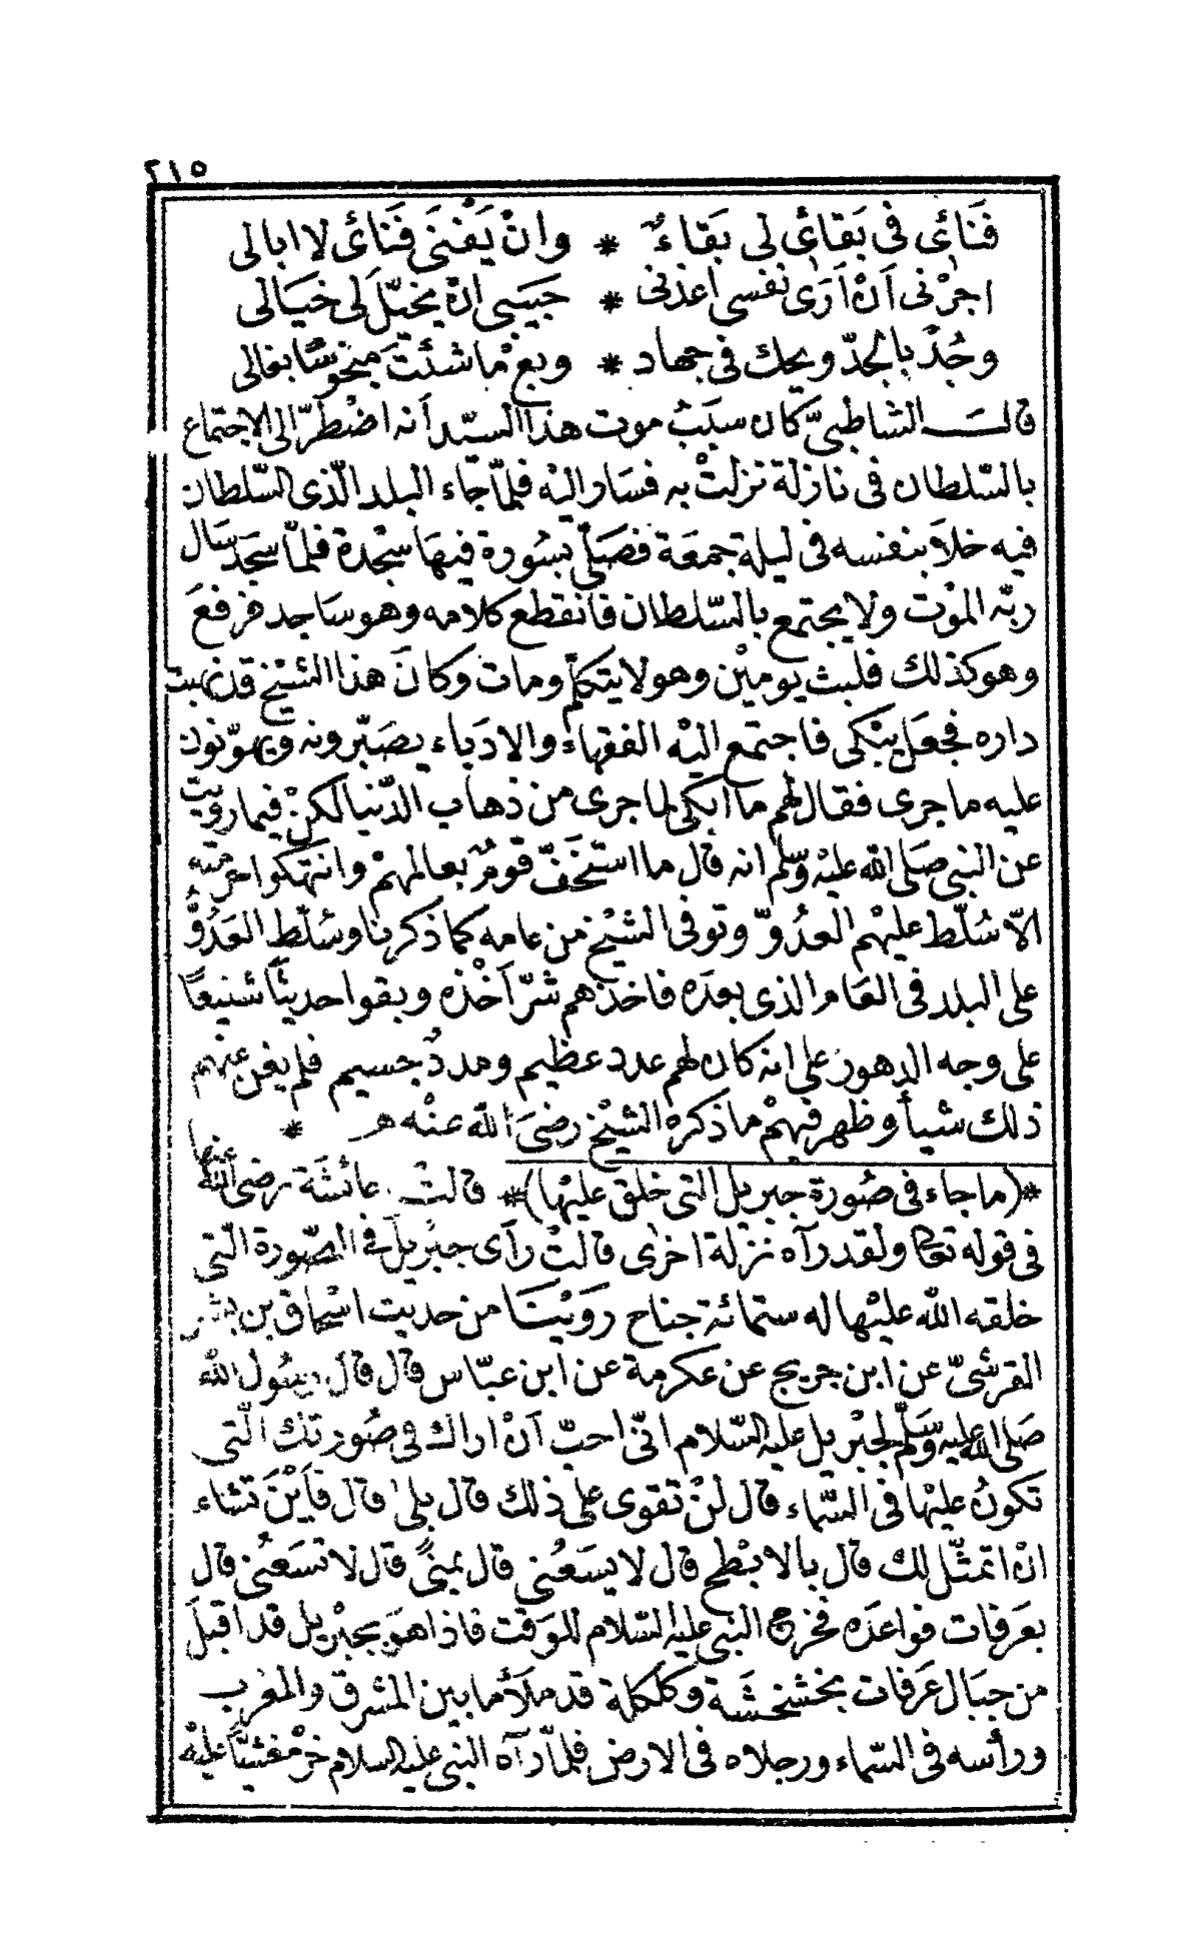 ٢١٥
فَنَائى فى بَقائى لى بَقَاءٌ * وانْ يَفْنَى فَنَائى لا ابالى
اجرْنى اَنْ اَرَى نفسى اعذنى * حَبيبى انْ يخيّل لى خيَالى
وجُدْ بالجدّ ويحك فى جهاد * وبعْ ما شئتَ منحوسًا بغالى
قالـــ الشاطبىّ كان سبَبُ موت هذا السيّد أنه اضْطرّ الى الاجتماع
بالسّلطان فى نازلة نزلتْ به فسَار اليْه فلمّا جَاء البلد الّذى السّلطان
فيه خلاَ بنفسه فى ليلة جمعَة فصَلّى بسُورة فيهَا سجْدة فلمّا سجَد سَال
ربّه الموْت ولا يجتمع بالسّلطان فانقطع كلامه وهو سَاجد فرفعَ
وهو كذلك فلبث يوميْن وهو لا يتكلّم ومات وكانَ هذا الشيْخ قد نهبت
داره فجعَل يبْكى فاجتمع اليْه الفقهاء والادَباء يصَبّرونه ويهوّنون
عليه ما جرى فقال لهم ما ابكى لما جرى من ذهاب الدّنيا لكنْ فيما رويت
عن النبى صَلى الله عليْه وسّلم انه قال ما استخَفّ قومٌ بعالمهمْ وانتهكوا حرمته
الاّ سُلّط عليْهم العدُوّ وتوفى الشيْخ من عامه كما ذكرنا وسُلّط العَدُوُّ
على البلد فى العَام الذى بعدَه فاخذهم شرّ اَخْذه وبقوا حديثًا شنيعًا
على وجه الدهور على انه كان لهم عدد عظيم ومددٌ جسيم فلم يغن عنهم
ذلك شيأ وظهر فيهمْ ما ذكره الشيْخ رضىَ الله عنْه هـ *
*(ما جاء فى صُورة جبريل التى خلق عليْها)* قالتْ عائشَة رضى الله عنها
فى قوله تعالى ولقد رآه نزلة اخرٰى قالتْ رأى جبْريل فى الصّورة الّتى
خلقه الله عليْها له ستمائة جناح روَيْنَا من حديث اسْحاق بن بشر
القرشىّ عن ابن جريج عن عكرمة عن ابن عبّاس قال قالَ رسُول الله
صَلى الله عليه وَسَلّم لجبْريل عليه السّلام انّى احبّ اَنْ اراك فى صُورتك الّتى
تكونُ عليْها فى السّماء قال لنْ تقوى على ذلك قال بلىٰ قال فأيْنَ تشاء
انْ اتمثّل لك قال بالابْطح قال لا يسَعُنى قال بمنىً قال لا تسَعُنى قال
بعَرفات فواعدَه فخرج النبى عليه السّلام للوَقت فاذا هوَ بجبْريل قد اقبلَ
من جبَال عَرفات بخشخشَة وكلكلة قد ملَأ ما بين المشرق والمغرب
ورأسه فى السّماء ورجلاه فى الارض فلمّا رآه النبى عليه السلام خرّ مغشيّا عليْه